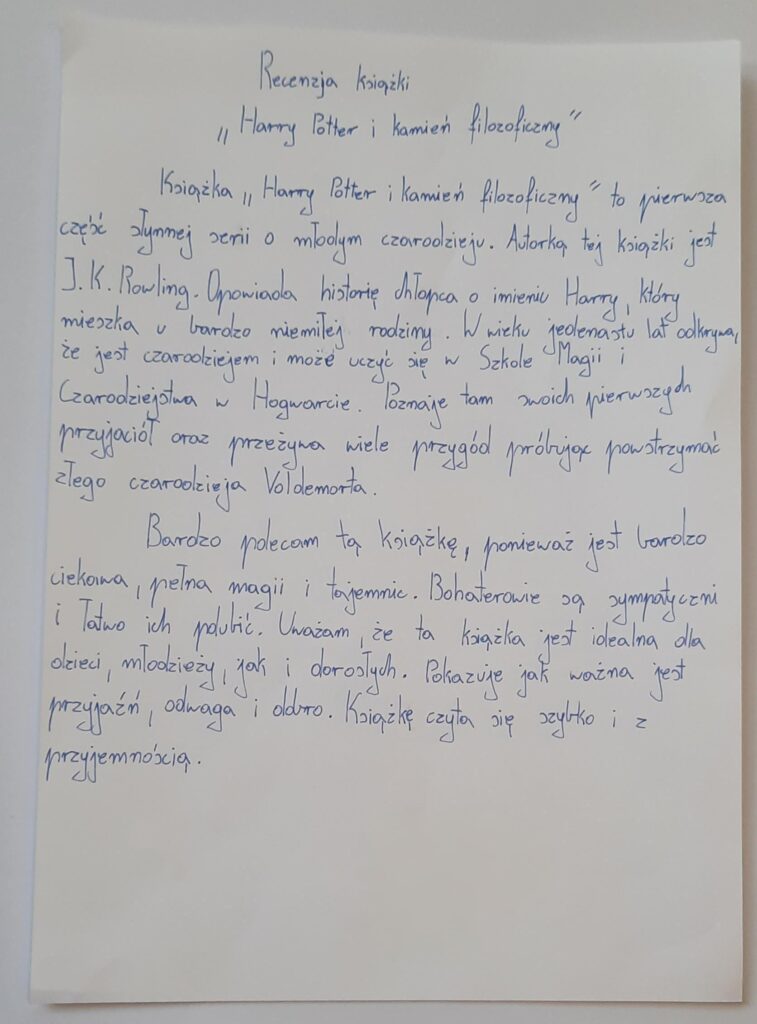 Recenzja książki
„Harry Potter i kamień filozoficzny”
Książka „Harry Potter i kamień filozoficzny” to pierwsza
część słynnej serii o młodym czarodzieju. Autorką tej książki jest
J.K. Rowling. Opowiada historię chłopca o imieniu Harry, który
mieszka u bardzo niemiłej rodziny. W wieku jedenastu lat odkrywa,
że jest czarodziejem i może uczyć się w Szkole Magii i
Czarodziejstwa w Hogwarcie. Poznaje tam swoich pierwszych
przyjaciół oraz przeżywa wiele przygód próbując powstrzymać
złego czarodzieja Voldemorta.
Bardzo polecam tą książkę, ponieważ jest bardzo
ciekawa, pełna magii i tajemnic. Bohaterowie są sympatyczni
i łatwo ich polubić. Uważam, że ta książka jest idealna dla
dzieci, młodzieży, jak i dorosłych. Pokazuje jak ważna jest
przyjaźń, odwaga i dobro. Książkę czyta się szybko i z
przyjemnością.